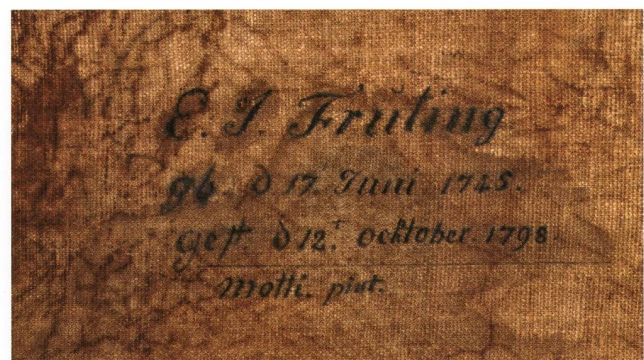 E. I. Fruting
gb. d 17. Juni 1745.
gest. d 12.t Ocktober. 1798
Motti. pint.